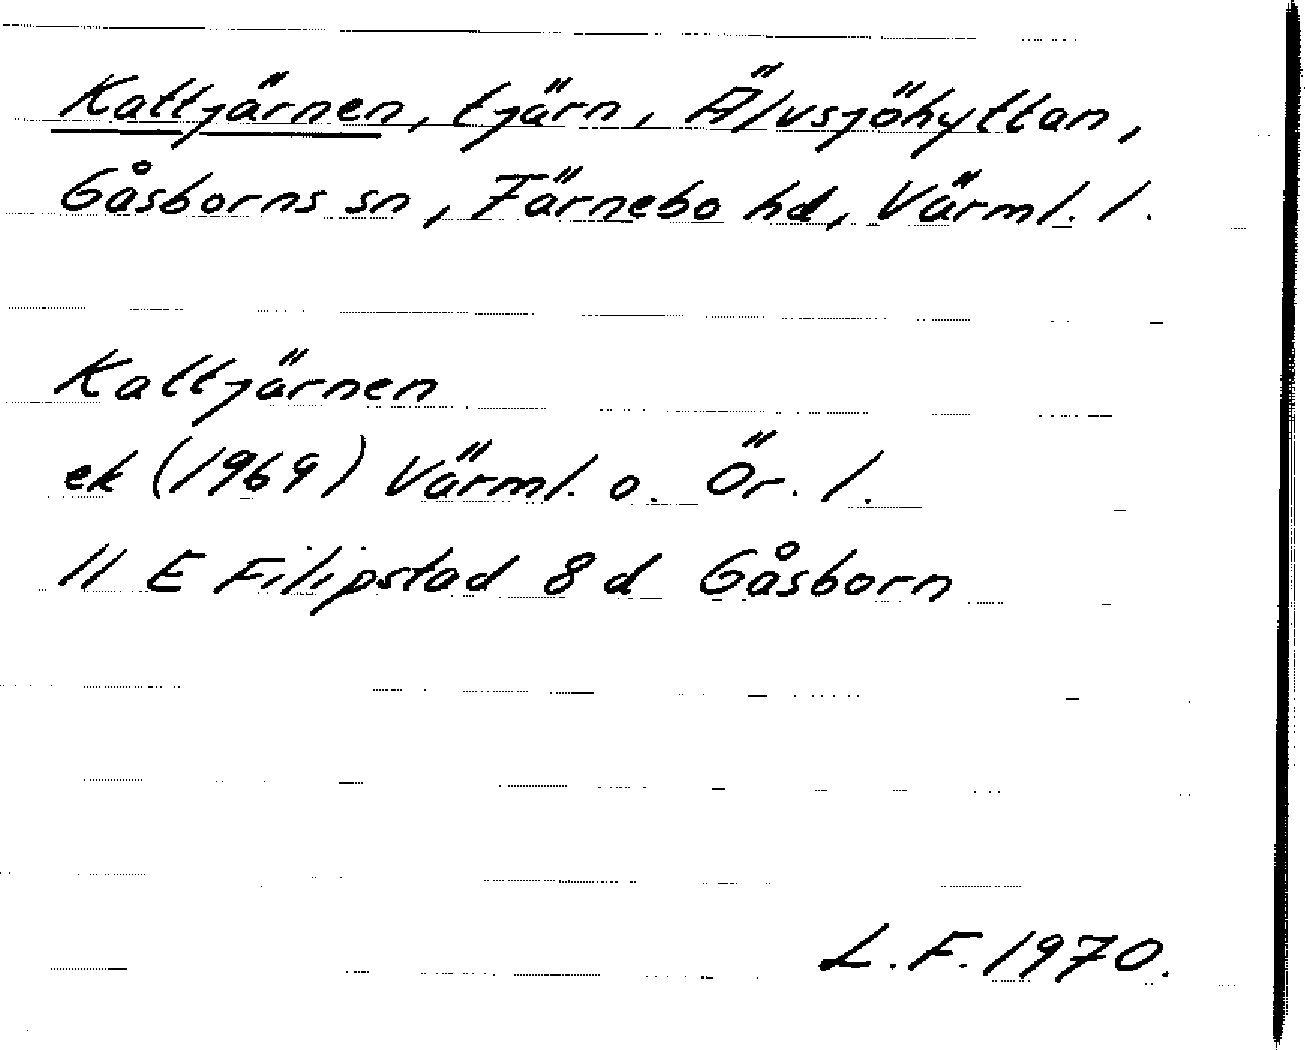 Kattjärnen, tjärn, Älvsjöhyttan,
Gåsborns sn, Färnebo hd, Värml. l.
Kattjärnen
ek (1969) Värml. o. Ör. l.
11 E Filipstad 8 d Gåsborn
L.F. 1970.